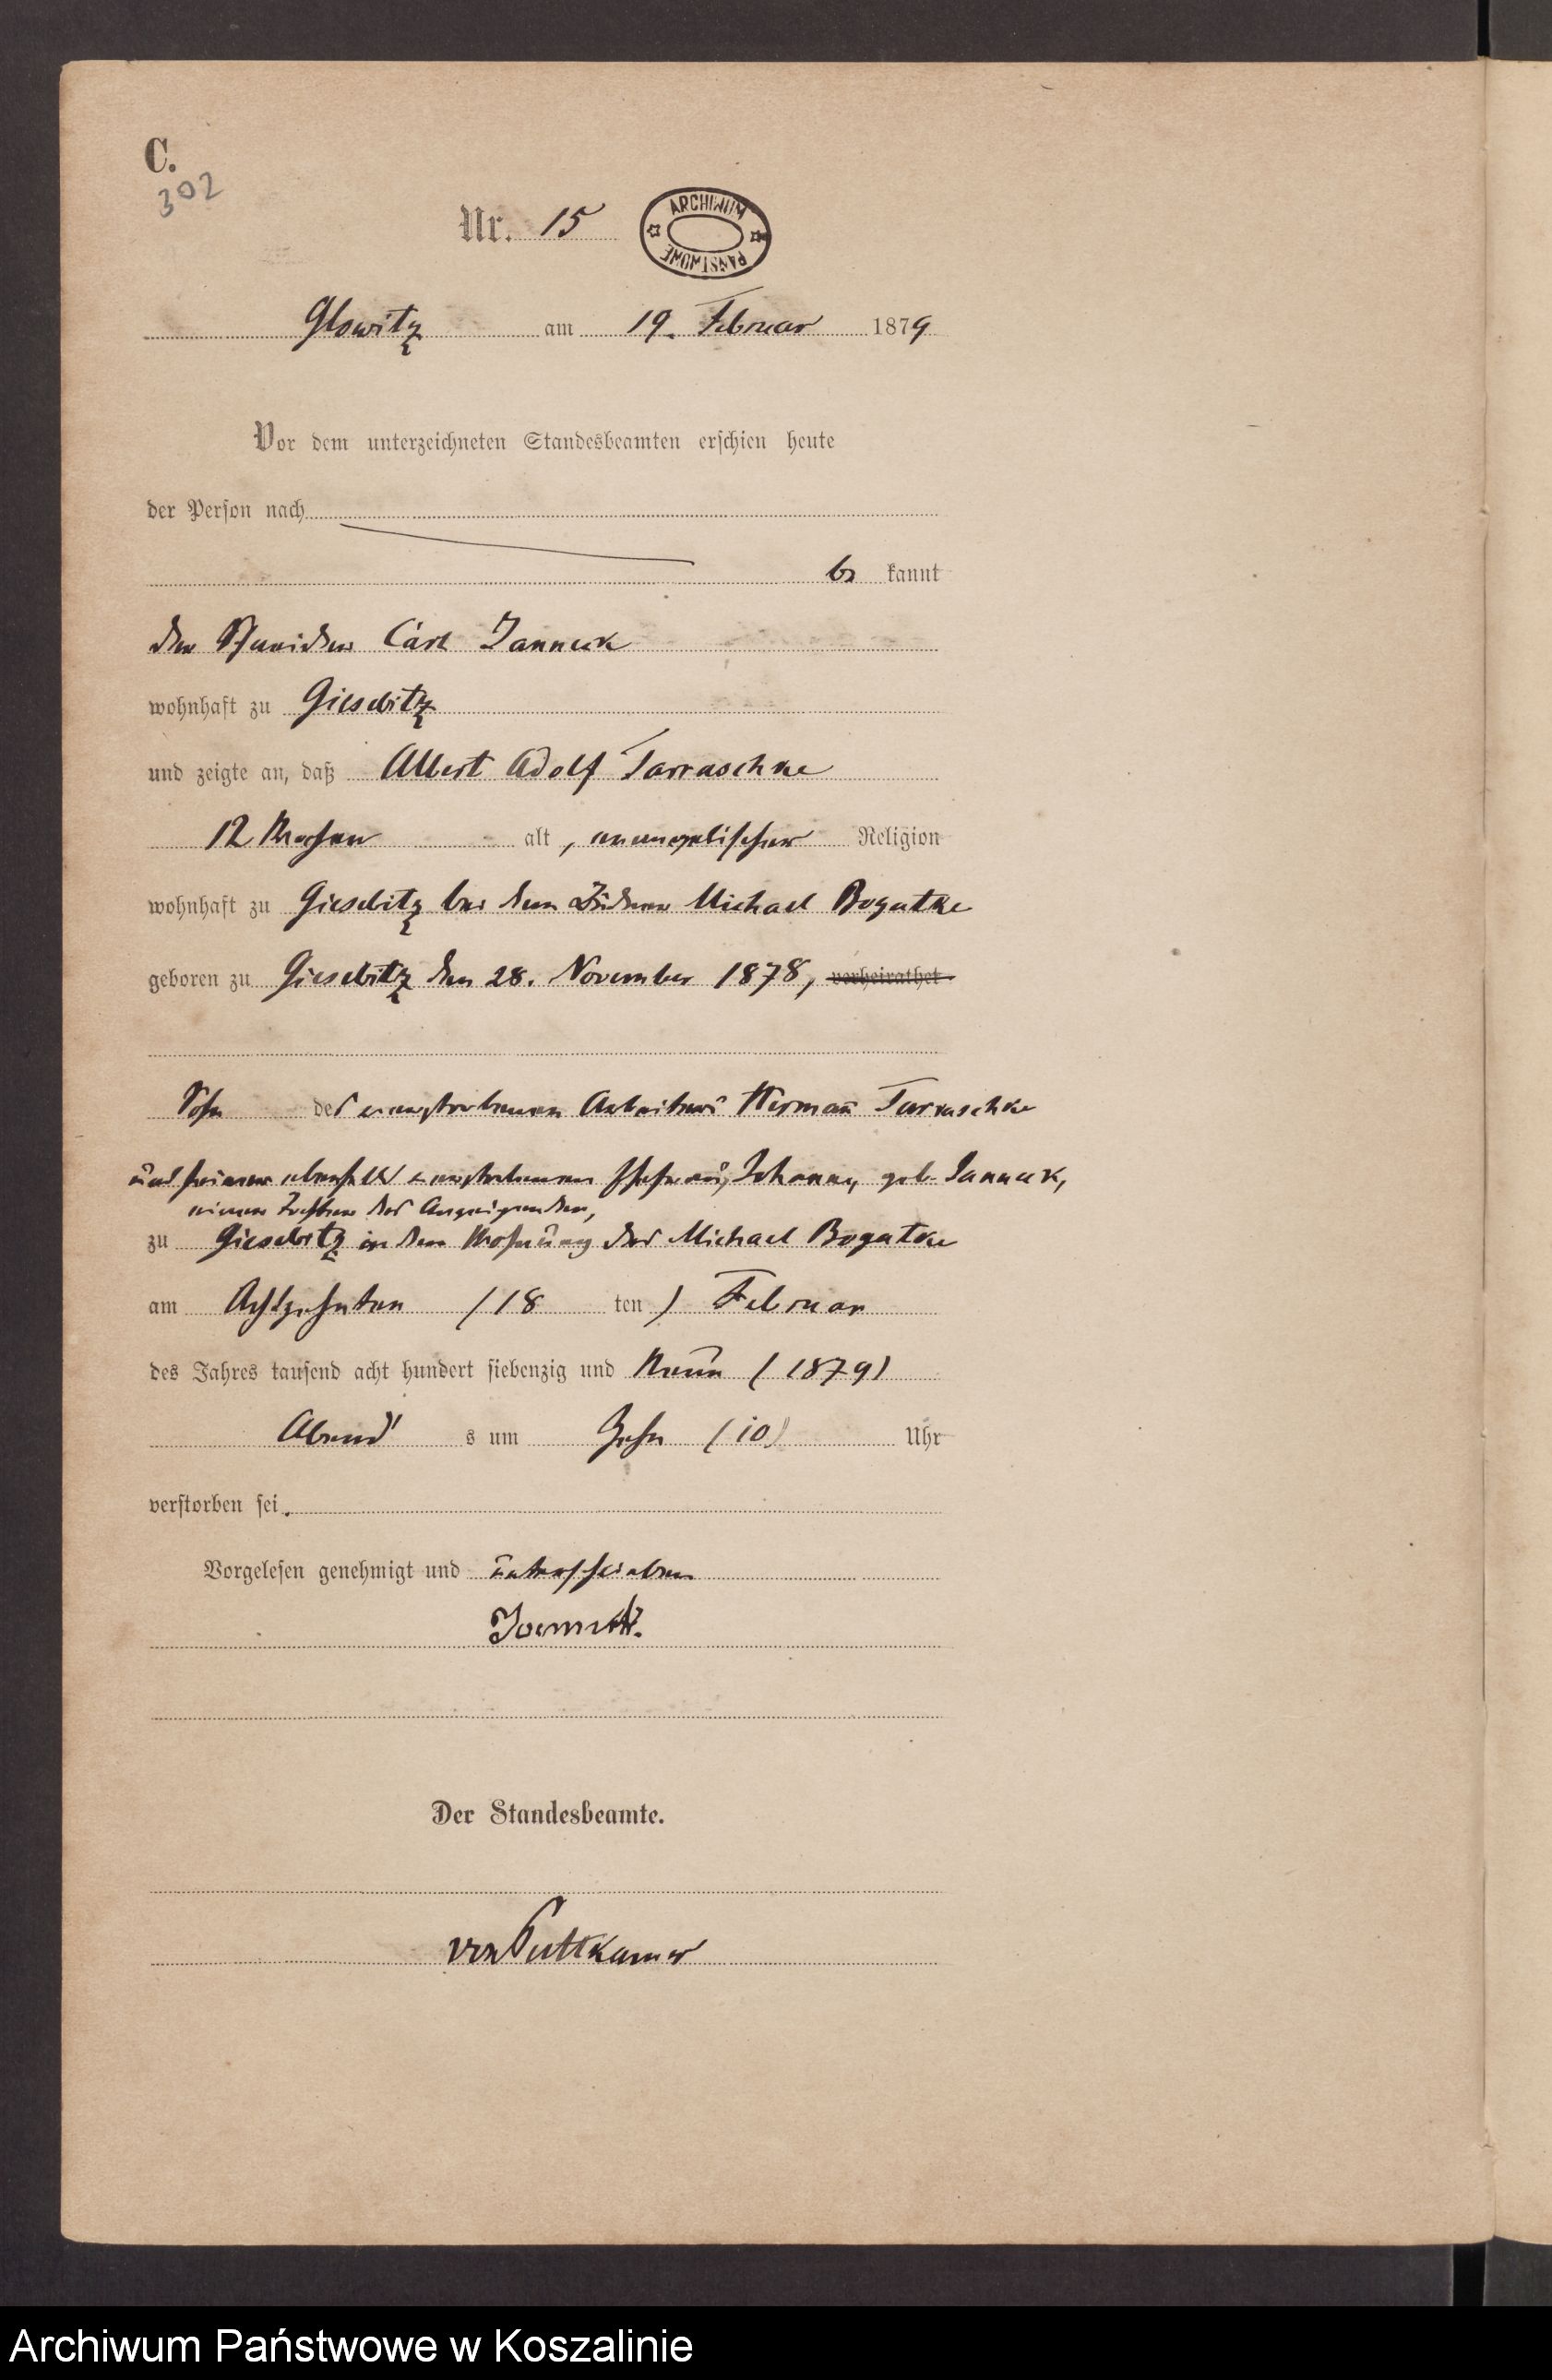 C.
302
Nr. 15
ARCHIWUM PAŃSTWOWE
Glowitz am 19. Februar 1879
Vor dem unterzeichneten Standesbeamten erschien heute
der Person nach
be kannt
der Schneider Carl Janneck
wohnhaft zu Giesebitz
und zeigte an, daß Albert Adolf Tarraschke
12 Wochen alt, evangelischer Religion
wohnhaft zu Giesebitz bei dem Büdner Michael Bogatke
geboren zu Giesebitz den 28. November 1878, verheirathet
Sohn des verstorbenen Arbeiters Hermann Tarraschke
und seiner ebenfalls verstorbenen Ehefrau, Johanna, geb. Janneck,
einer Tochter des Anzeigenden,
zu Giesebitz in der Wohnung des Michael Bogatke
am Achtzehnten (18 ten) Februar
des Jahres tausend acht hundert siebenzig und Neun (1879)
Abend s um Zehn (10) Uhr
verstorben sei.
Vorgelesen genehmigt und unterschrieben
Janneck.
Der Standesbeamte.
von Puttkamer
Archiwum Państwowe w Koszalinie